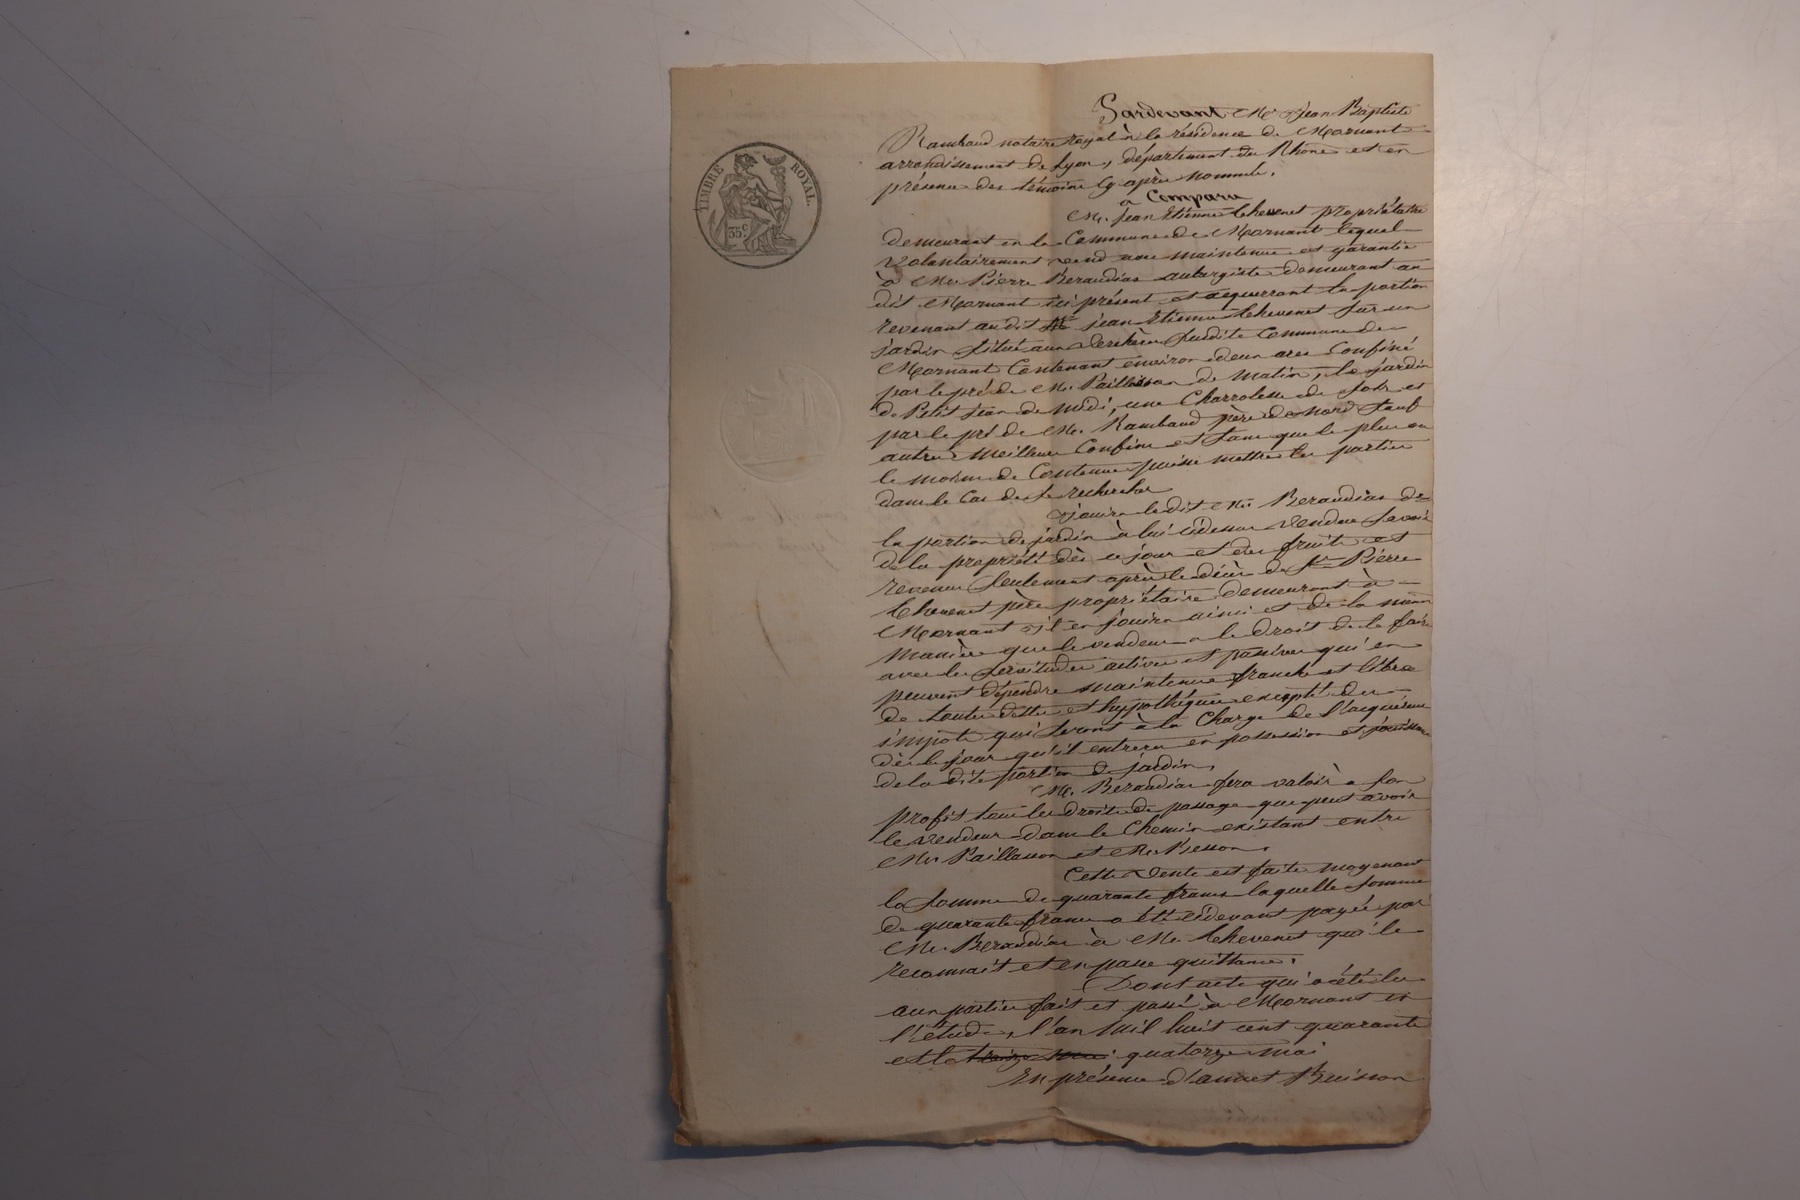 TIMBRE ROYAL.
35 c.
Pardevant Me Jean Baptiste
Rambaud notaire royal à la résidence de Mornant
arrondissement de Lyon, département du Rhône et en
présence des témoins cy après nommés.
a Comparu
M. Jean Etienne Chevenet propriétaire
demeurant en la Commune de Mornant lequel
volontairement vend avec maintenue et garantie
à Mr Pierre Beraudias aubergiste demeurant au
dit Mornant ici présent et acquerrant la portion
revenant au dit jean Etienne Chevenet sur un
jardin situé aux Verchères susdite Commune de
Mornant Contenant environ deux ares Confiné
par le pré de M. Paillasson de matin, le jardin
de Petit jean de midi, une Charrolesse de soir et
par le pré de M. Rambaud père de nord sauf
autres meilleurs Confins et sans que le plus ou
le moins de Contenue puisse mettre les parties
dans le Cas de se rechercher
Jouira le dit Mr Beraudias de
la portion de jardin à lui cidessus vendue savoir
de la propriété dès ce jour et des fruits et
revenus seulement après le décès de Sr Pierre
Chevenet père propriétaire demeurant à
Mornant il en jouira ainsi et de la même
manière que le vendeur a le droit de le faire
avec les servitudes actives et passives qui en
peuvent dépendre maintenue franche et libre
de toutes dettes et hypothèques excepté des
impôts qui seront à la Charge de l'acquéreur
dès le jour qu'il entrera en possession et jouissance
de la dite portion de jardin,
M. Beraudias fera valoir à son
profit tous les droits de passage que peut avoir
le vendeur dans le Chemin existant entre
Mr Paillasson et Mr Besson.
Cette Vente est faite moyenant
la somme de quarante francs laquelle somme
de quarante francs a été cidevant payée par
Mr Beraudias à Mr Chevenet qui le
reconnait et en passe quittance.
Dont acte qui a été lu
aux parties fait et passé à Mornant en
l'étude, l'an mil huit cent quarante
et le treize mai quatorze mai
En présence d'annet Buisson